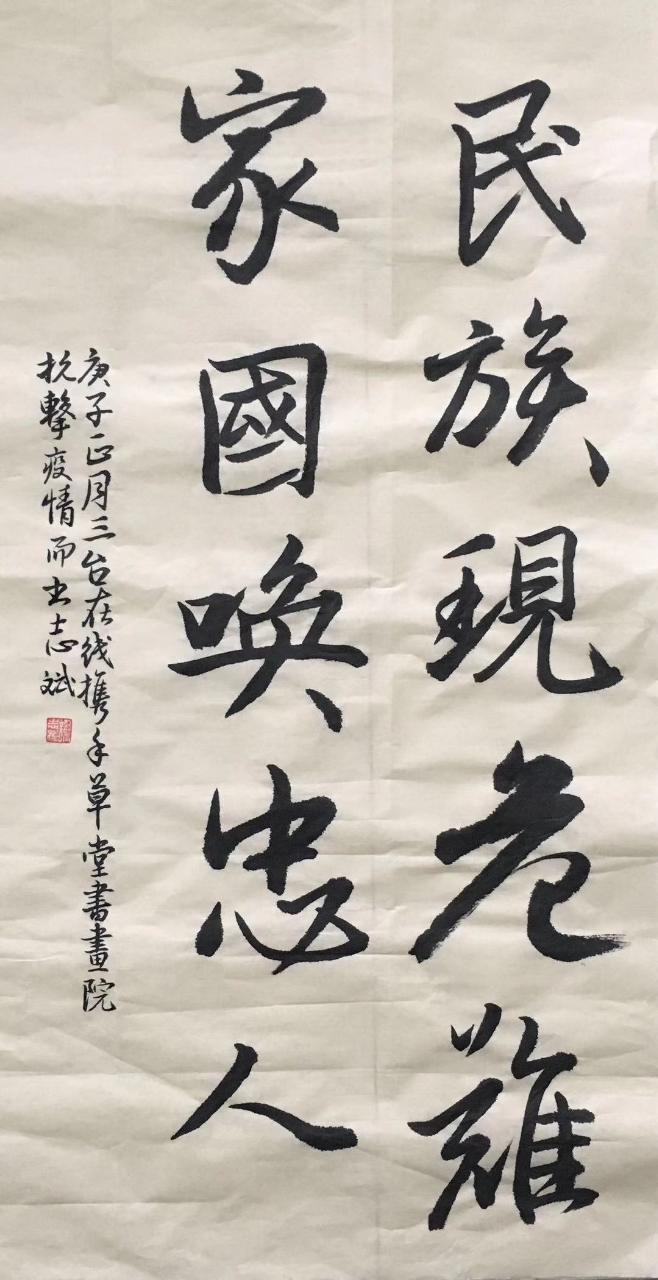 民族現危難
家國喚忠人
庚子正月三台在线携手草堂書畫院
抗擊疫情而书志斌